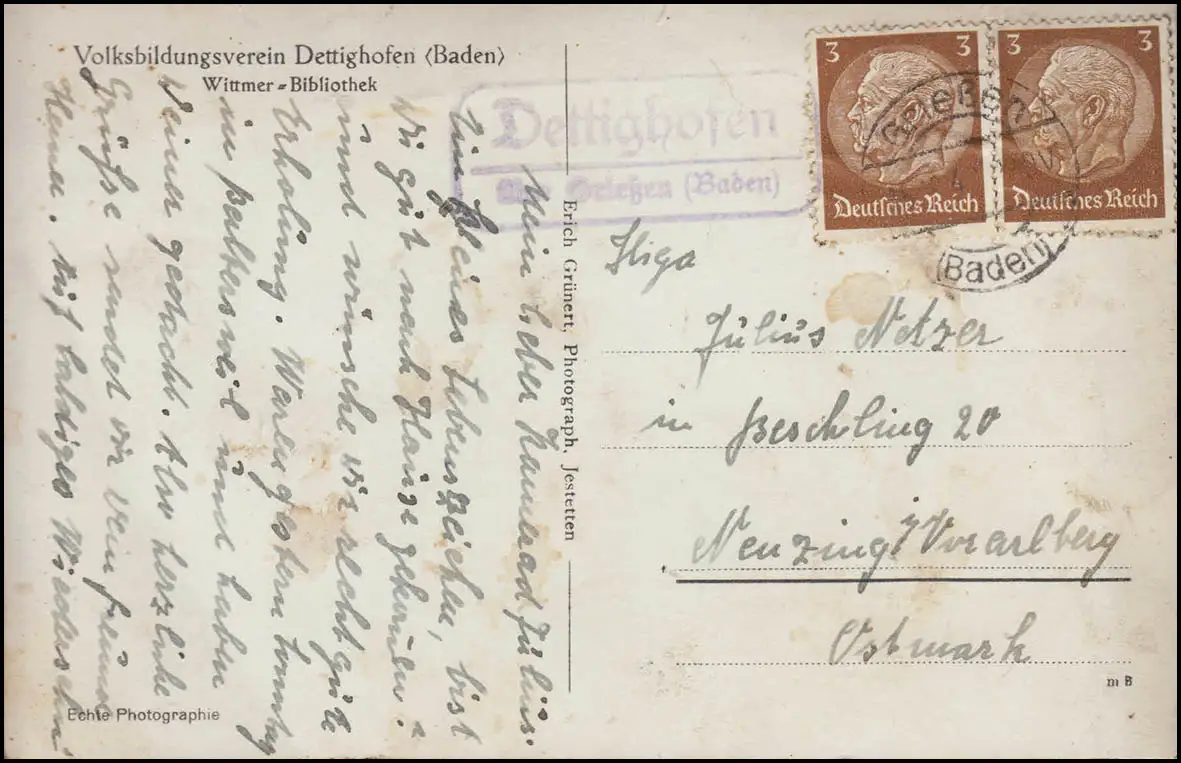 Volksbildungsverein Dettighofen (Baden)
Wittmer-Bibliothek
Dettighofen
über Grießen (Baden)
3
3
Deutsches Reich
Deutsches Reich
(Baden)
Mein lieber Kamerad Julius.
Ein kleines Lebenszeichen, bist
Du gut nach Hause gekommen?
und wünsche Dir recht gute
Erholung. Waren gestern Sonntag
in und haben
Deiner gedacht. Also herzliche
Grüsse sendet Dir Dein Freund
Auf baldiges Wiedersehn
Erich Grünert, Photograph, Jestetten
Julius Netzer
in Beschling 20
Nenzing / Vorarlberg
Ostmark
m B
Echte Photographie